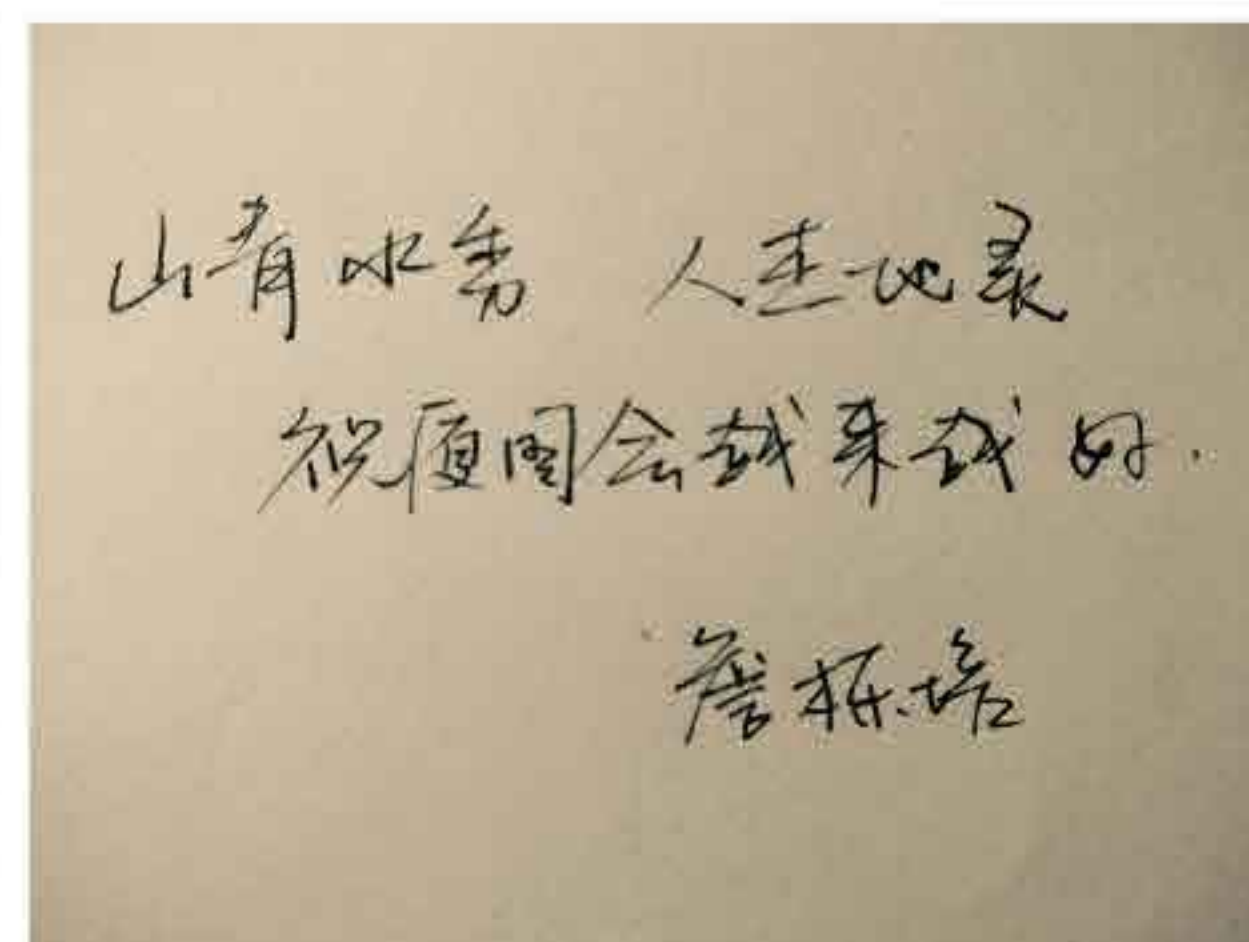 山青水秀 人杰地灵
祝厦图会越来越好.
詹 培